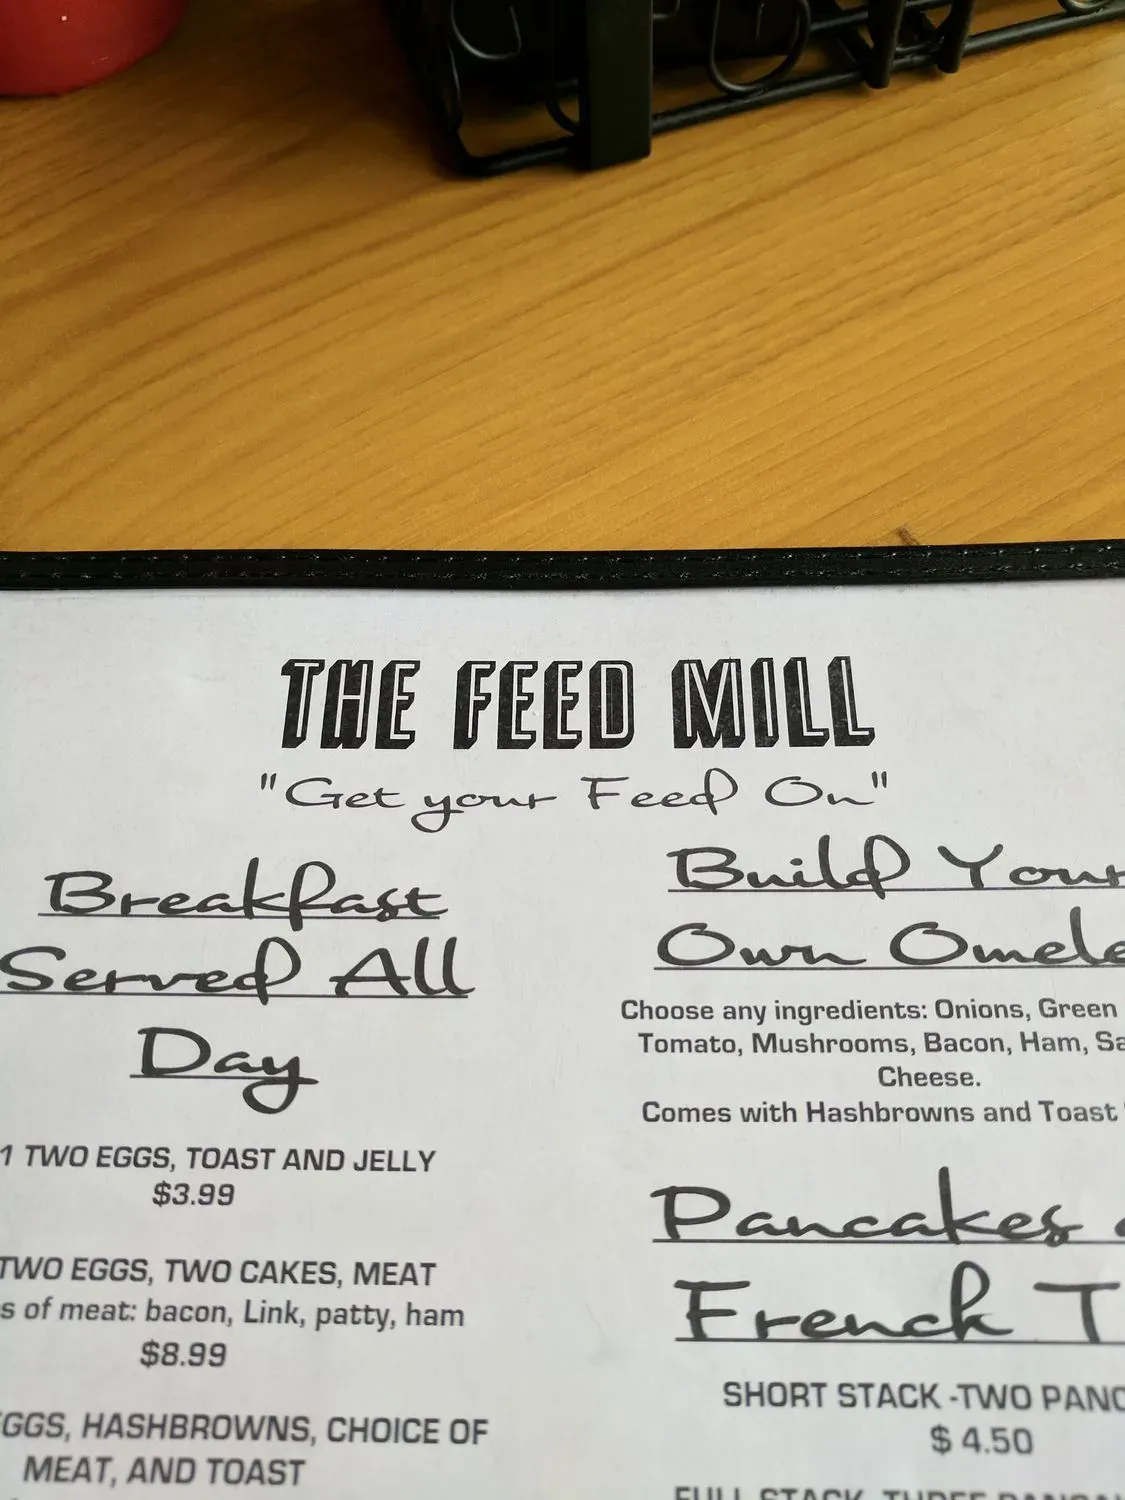 THE FEED MILL
"Get your Feed On"
Breakfast
Served All
Day
1 TWO EGGS, TOAST AND JELLY
$3.99
TWO EGGS, TWO CAKES, MEAT
of meat: bacon, Link, patty, ham
$8.99
HASHBROWNS, CHOICE OF
MEAT, AND TOAST
Build Your
Own
Choose any ingredients: Onions, Green
Tomato, Mushrooms, Bacon, Ham,
Cheese.
Comes with Hashbrowns and Toast
Pancakes
French
SHORT STACK -TWO
$ 4.50
FULL STACK- THREE